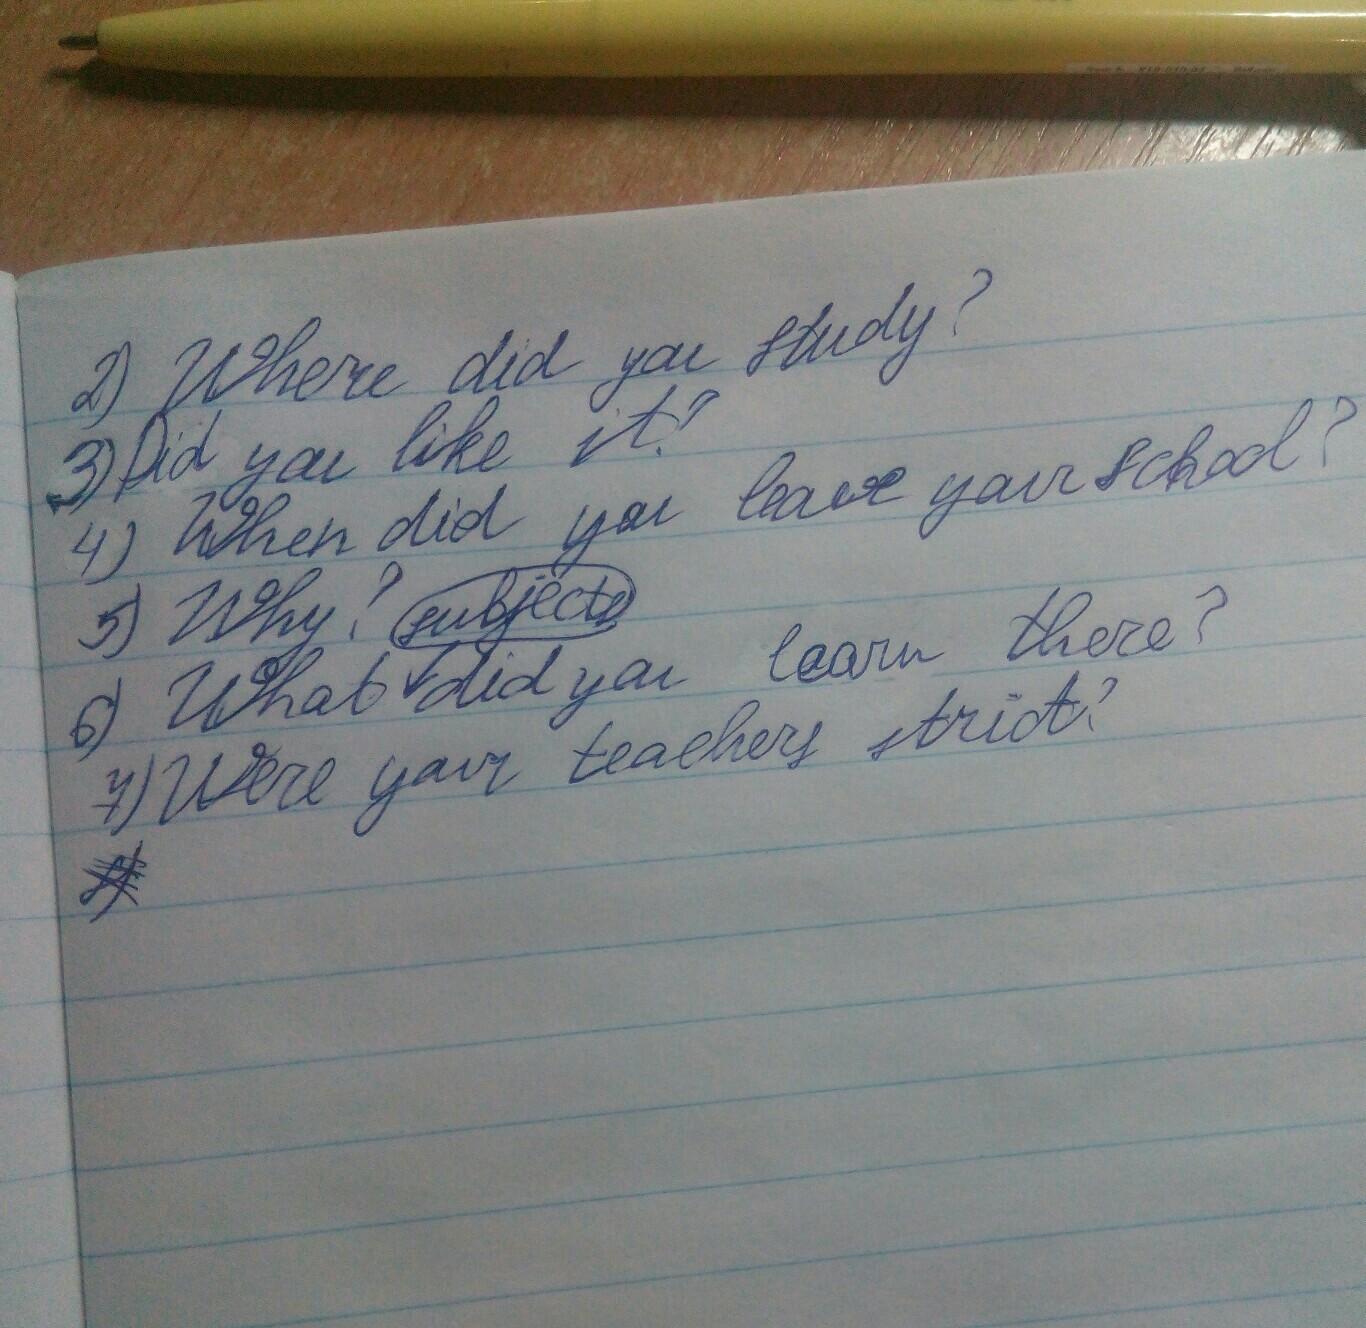 2) Where did you study?
3) Did you like it?
4) When did you leave your school?
5) Why?
6) What subjects did you learn there?
7) Were your teachers strict?